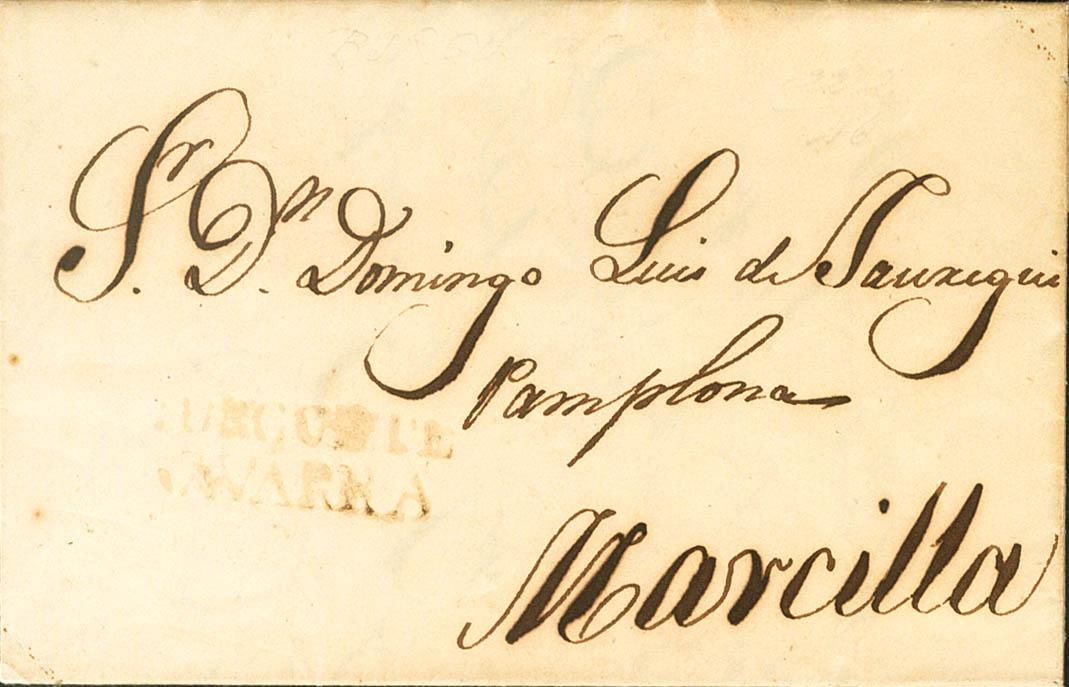 Sr. Dn. Domingo Luis de Jauregui
Pamplona
Marcilla